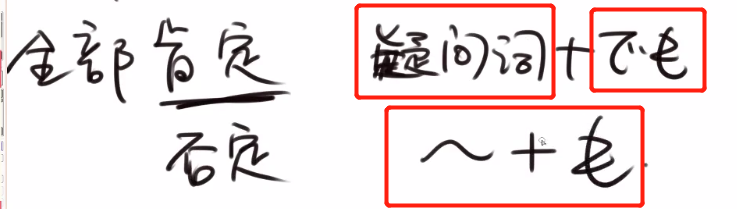 全部肯定 疑问词+でも
否定 ～+も